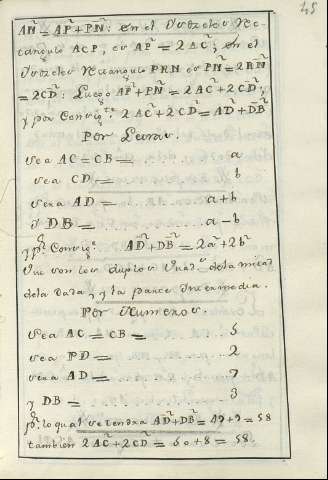 45
AN² = AP² + PN²: en el Ysozeles Rec-
tangulo ACP, es AP² = 2AC²; en el
Ysozeles Rectangulo PRN es PN² = 2RN²
= 2CD²: Luego AP² + PN² = 2AC² + 2CD²;
y por Consigte 2AC² + 2CD² = AD² + DB²
Por Letras.
Sea AC = CB = ... a
sea CD = ... b
sera AD = ... a + b
i DB = ... a - b
y pr Consigte AD² + DB² = 2a² + 2b²
Que son los duplos de la mitad
dela dada, y la parte Intermedia.
Por Numeros.
Sea AC = CB = ... 5
sea PD = ... 2
sera AD = ... 7
y DB = ... 3
pr lo qual se tendra AD² + DB² = 49 + 9 = 58
tambien 2AC² + 2CD² = 50 + 8 = 58.